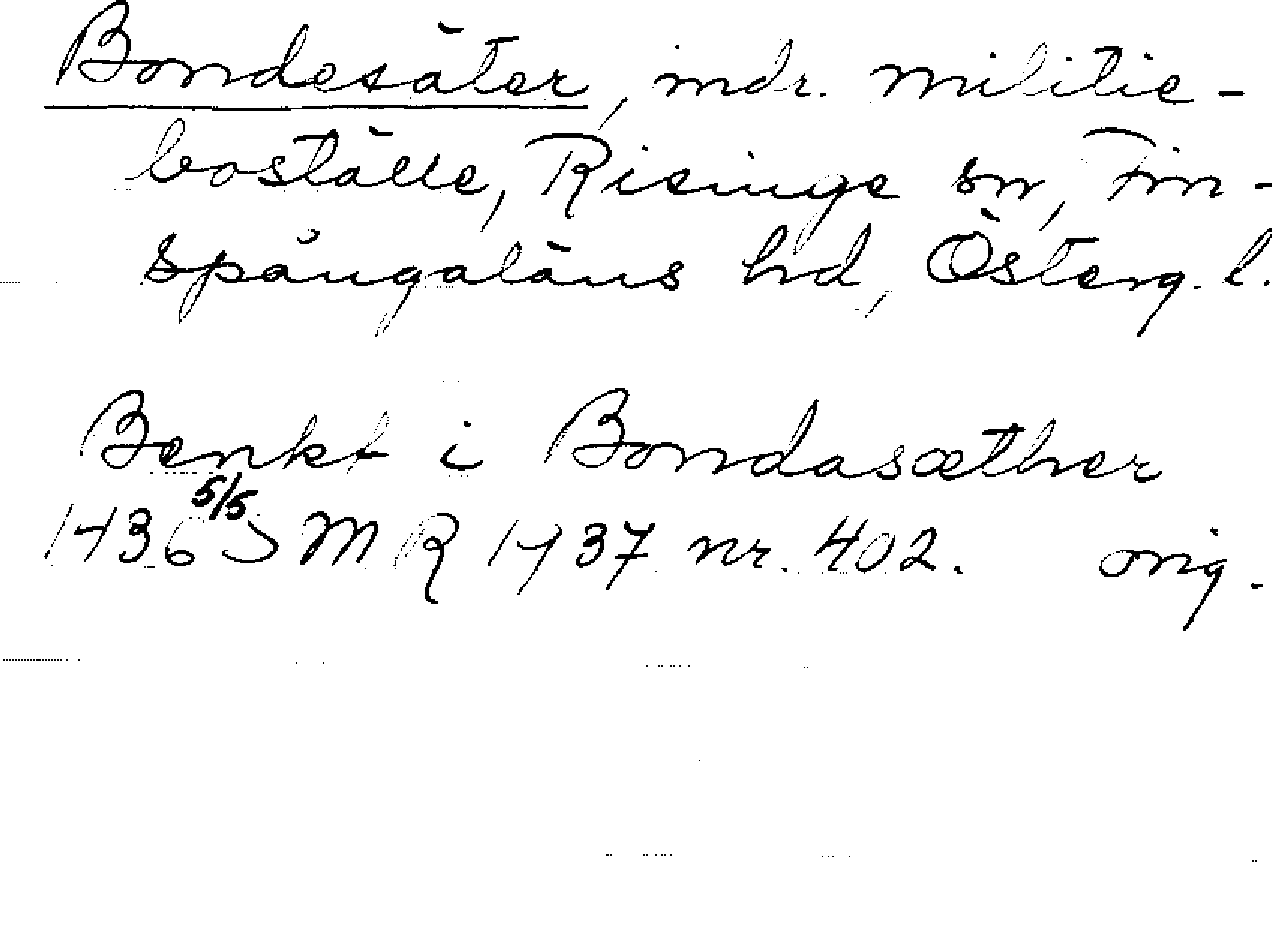 Bondesäter, mdr. militie-
boställe, Risinge sn, Fin-
spångaläns hd, Österg. l.
Benkt i Bondasæther
1436 5/5 SMR 1437 nr. 402. orig.